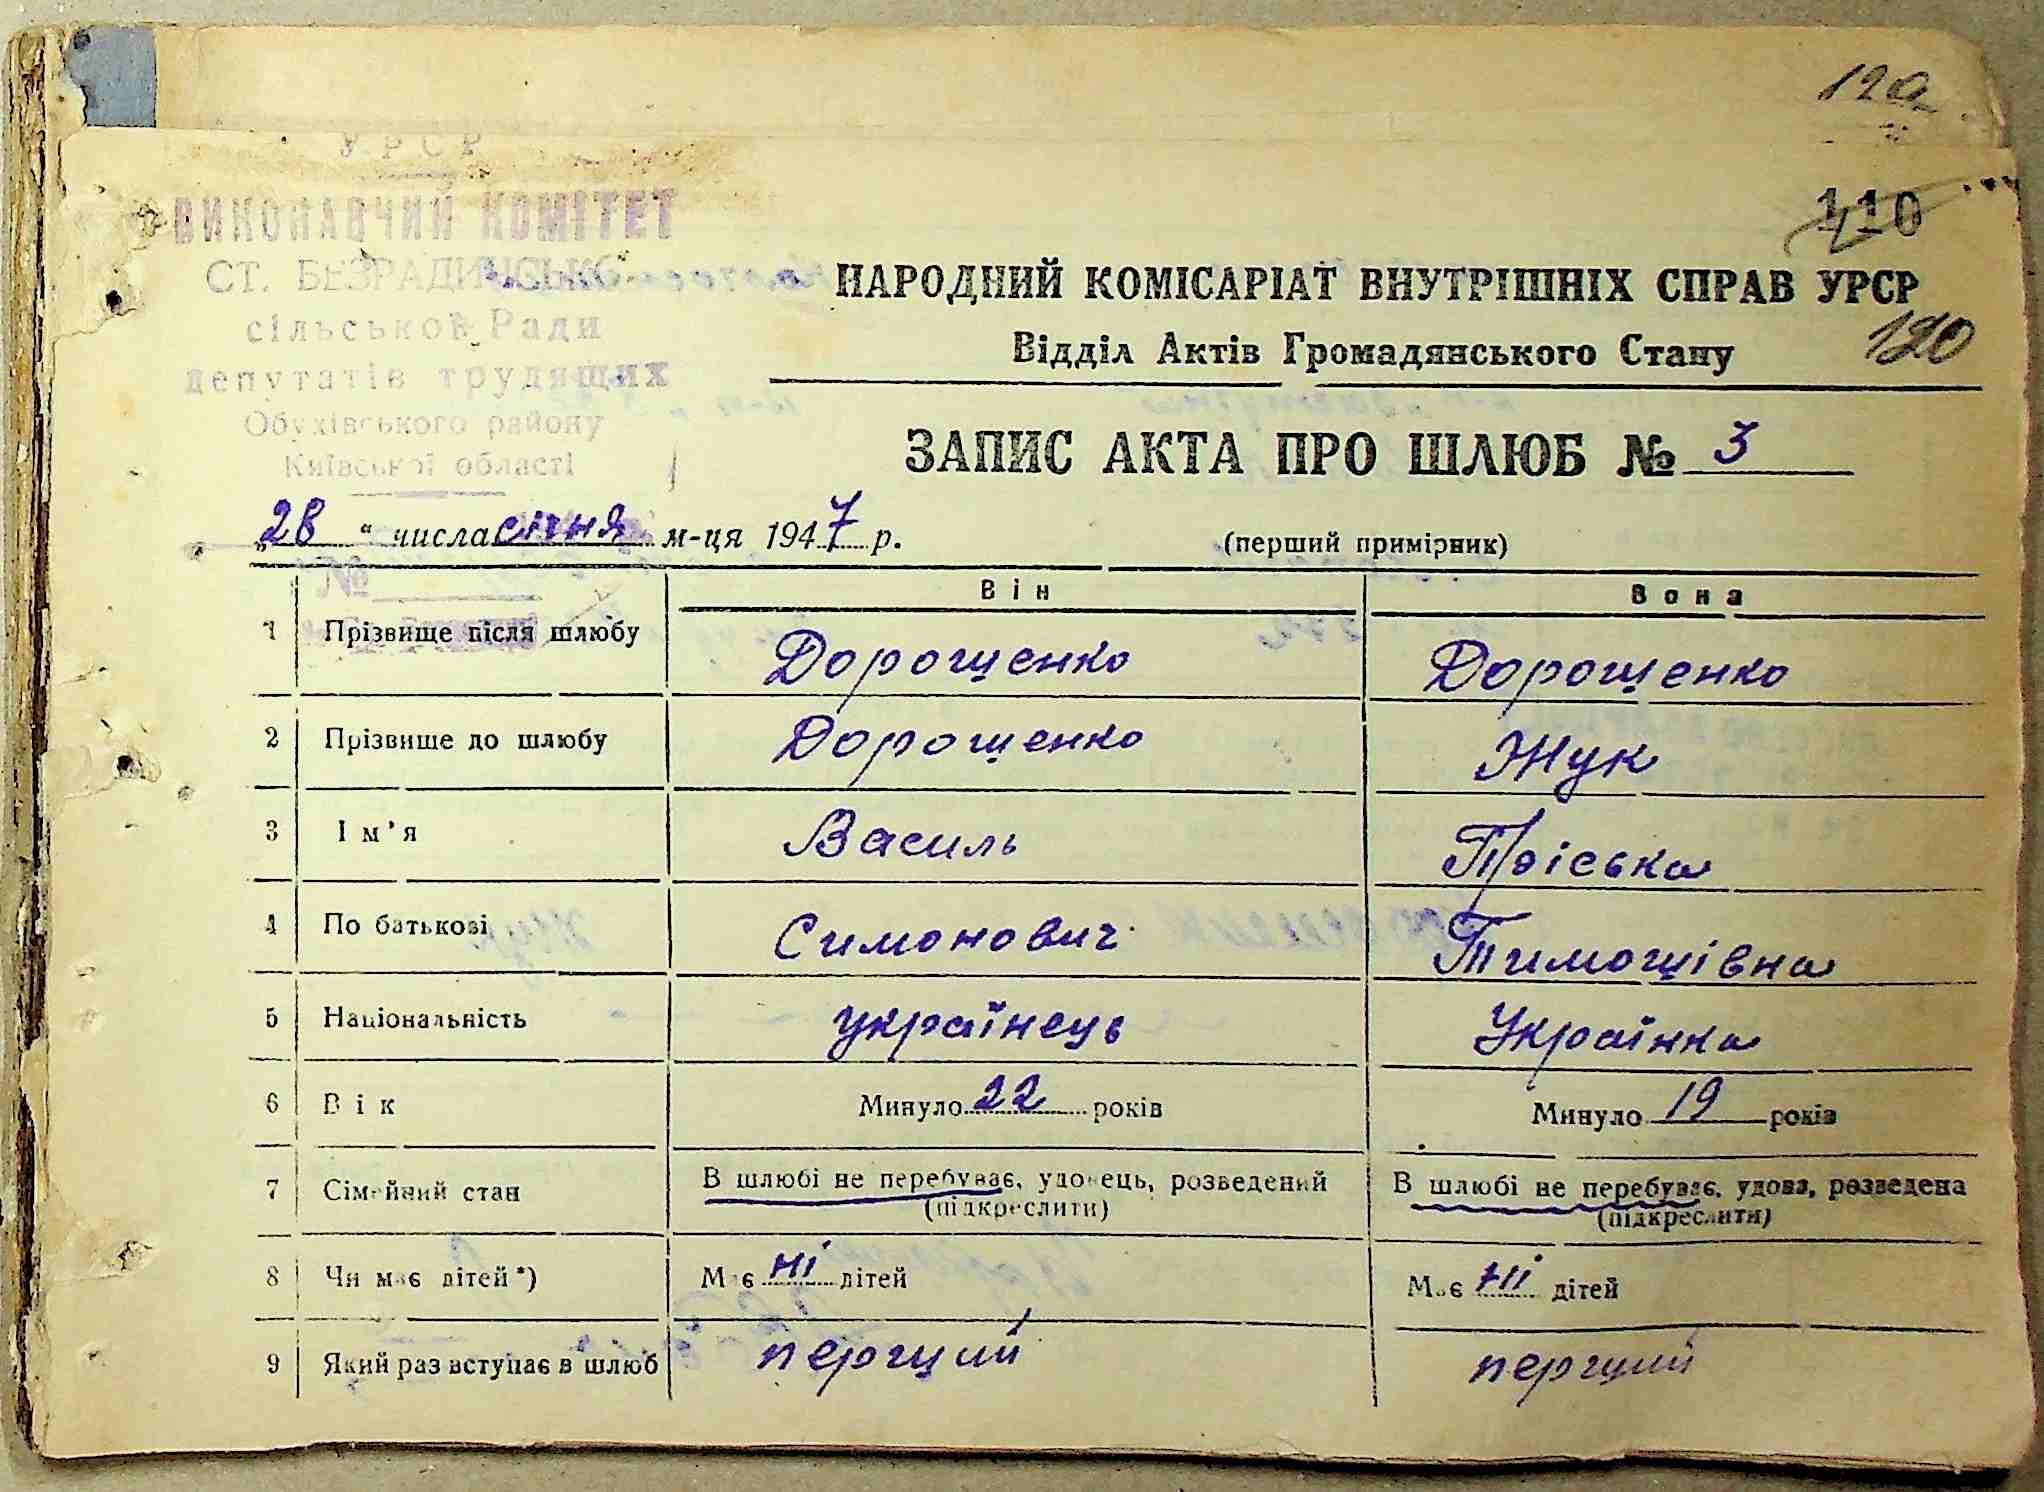 120
УРСР
ВИКОНАВЧИЙ КОМІТЕТ
110
СТ. БЕЗРАДИНСЬКОЇ
НАРОДНИЙ КОМІСАРІАТ ВНУТРІШНІХ СПРАВ УРСР
сільської Ради
Відділ Актів Громадянського Стану 120
депутатів трудящих
Обухівського району
Київської області
ЗАПИС АКТА ПРО ШЛЮБ № 3
„28“ числа січня м-ця 1947 р. (перший примірник)
№
Він Вона
1 Прізвище після шлюбу Дорошенко Дорошенко
2 Прізвище до шлюбу Дорошенко Жук
3 Ім'я Василь Пріська
4 По батькові Симонович Тимошівна
5 Національність українець Українка
6 Вік Минуло 22 років Минуло 19 років
7 Сімейний стан В шлюбі не перебуває, удовець, розведений В шлюбі не перебуває, удова, розведена
(підкреслити) (підкреслити)
8 Чи має дітей*) Має ні дітей Має ні дітей
9 Який раз вступає в шлюб перший перший